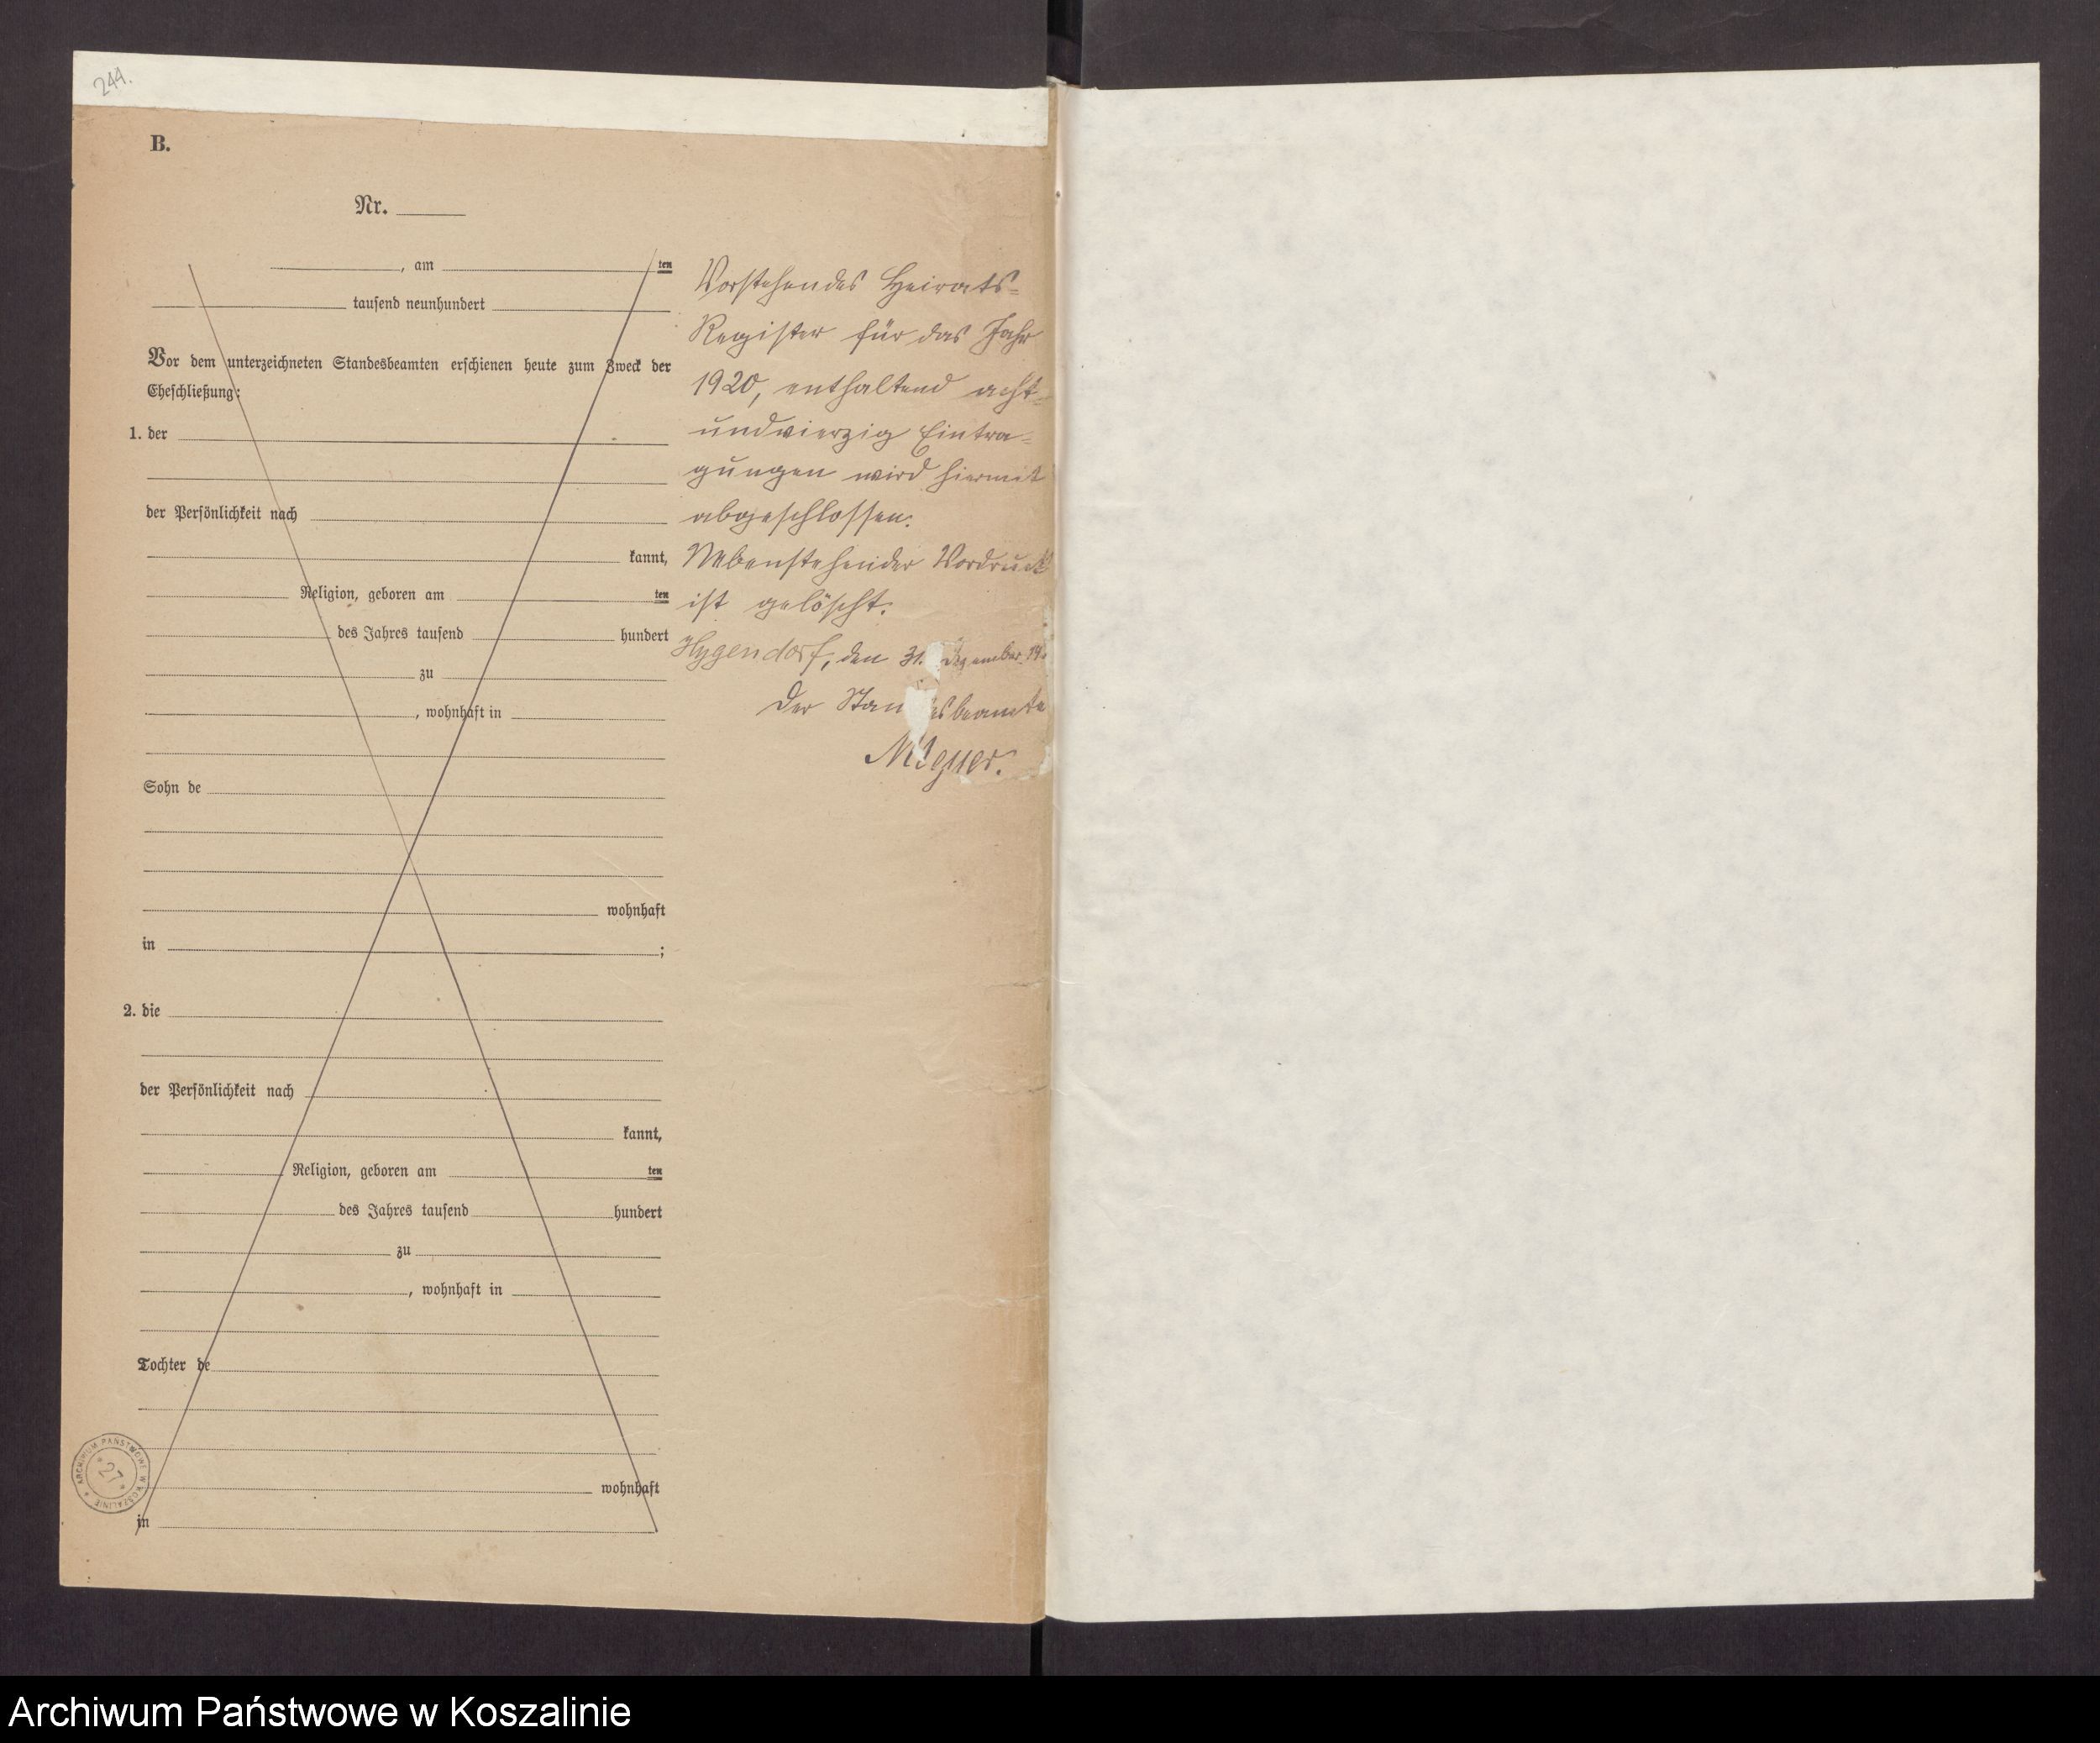 244.
B.
Nr.
, am ten
tausend neunhundert
Vor dem unterzeichneten Standesbeamten erschienen heute zum Zweck der
Eheschließung:
1. der
der Persönlichkeit nach
kannt,
Religion, geboren am ten
des Jahres tausend hundert
zu
, wohnhaft in
Sohn de
wohnhaft
in ;
2. die
der Persönlichkeit nach
kannt,
Religion, geboren am ten
des Jahres tausend hundert
zu
, wohnhaft in
Tochter de
wohnhaft
in
Vorstehendes Heirats-
Register für das Jahr
1920, enthaltend acht-
undvierzig Eintra-
gungen wird hiermit
abgeschlossen.
Nebenstehender Vordruck
ist gelöscht.
den 31. Dezember 19
Der Standesbeamte
ARCHIWUM PAŃSTWOWE W KOSZALINIE
27
Archiwum Państwowe w Koszalinie